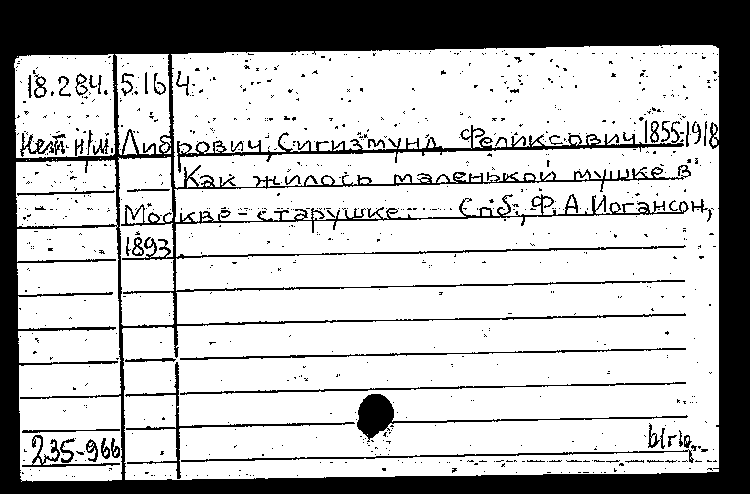 18.284.5.164
Нет н/м. Либрович, Сигизмунд Феликсович, 1855-1918
Как жилось маленькой мушке в
Москве-старушке. Спб., Ф. А. Иогансон,
1893
235-966